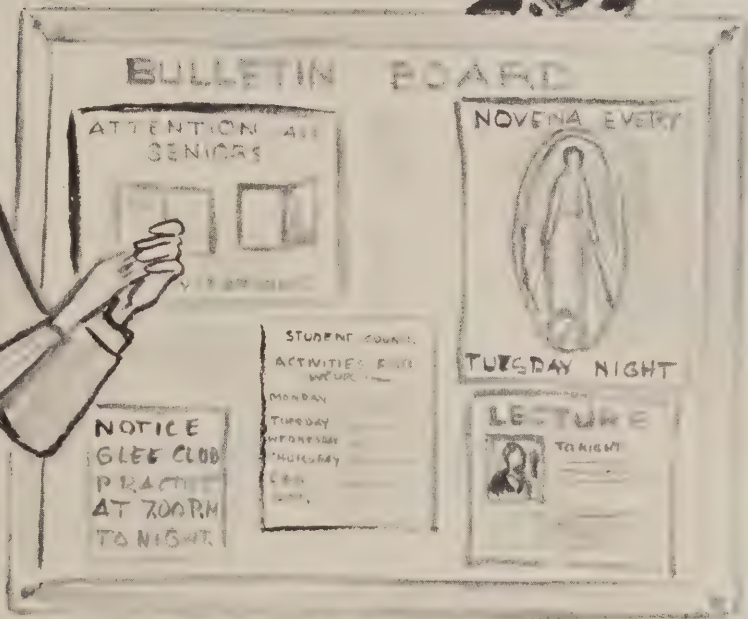 BULLETIN BOARD
ATTENTION ALL
SENIORS
NOVENA EVERY
TUESDAY NIGHT
STUDENT
ACTIVITIES FOR
MONDAY
TUESDAY
WEDNESDAY
THURSDAY
NOTICE
GLEE CLUB
PRACTICE
AT 7.00 P.M
TONIGHT.
LECTURE
TONIGHT